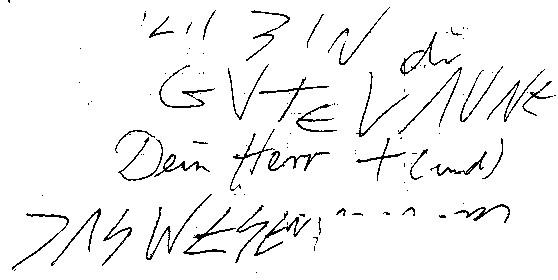 ICH BIN di
GVTE LAUNE
Dein Herr + (und)
DAS WESEN,